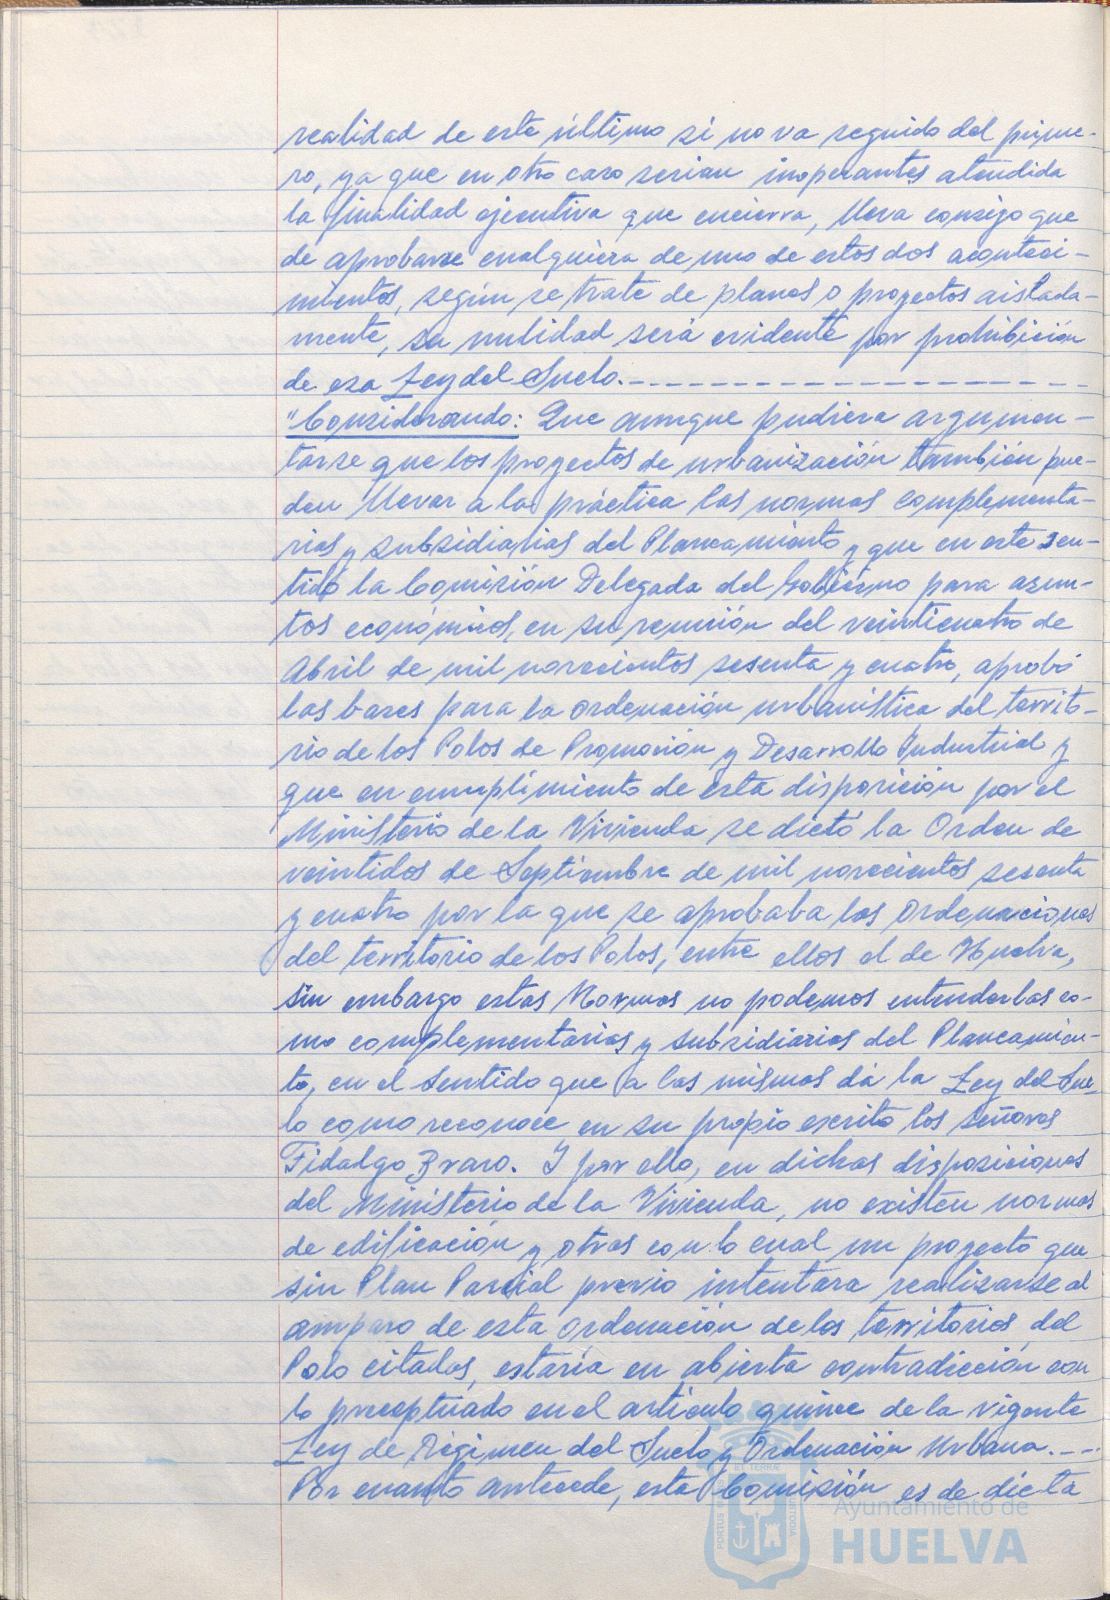 realidad de este último si no va seguido del prime-
ro, ya que en otro caso serian inoperantes atendida
la finalidad ejecutiva que encierra, lleva consigo que
de aprobarse cualquiera de uno de estos dos aconteci-
mientos, según se trate de planes o proyectos aislada-
mente, su nulidad será evidente por prohibición
de esa Ley del Suelo.--------------------
"Considerando: Que aunque pudiera argumen-
tarse que los proyectos de urbanización también pue-
den llevar a la práctica las normas complementa-
rias y subsidiarias del Planeamiento y que en este sen-
tido la Comisión Delegada del Gobierno para asun-
tos económicos, en su reunión del veinticuatro de
Abril de mil novecientos sesenta y cuatro, aprobó
las bases para la ordenación urbanística del territo-
rio de los Polos de Promoción y Desarrollo Industrial y
que en cumplimiento de esta disposición por el
Ministerio de la Vivienda se dictó la Orden de
veintidos de Septiembre de mil novecientos sesenta
y cuatro por la que se aprobaba las Ordenaciones
del territorio de los Polos, entre ellos el de Huelva,
sin embargo estas Normas no podemos entenderlas co-
mo complementarias y subsidiarias del Planeamien-
to, en el sentido que a las mismas dá la Ley del Sue-
lo como reconoce en su propio escrito los Señores
Fidalgo Bravo. Y por ello, en dichas disposiciones
del Ministerio de la Vivienda, no existen normas
de edificación y otras con lo cual un proyecto que
sin Plan Parcial previo intentara realizarse al
amparo de esta Ordenación de los territorios del
Polo citados, estaría en abierta contradicción con
lo preceptuado en el artículo quince de la vigente
Ley de Régimen del Suelo y Ordenación Urbana.---
Por cuanto antecede, esta Comisión es de dicta
PORTUS
ET TERRAE
CUSTODIA
Ayuntamiento de
HUELVA